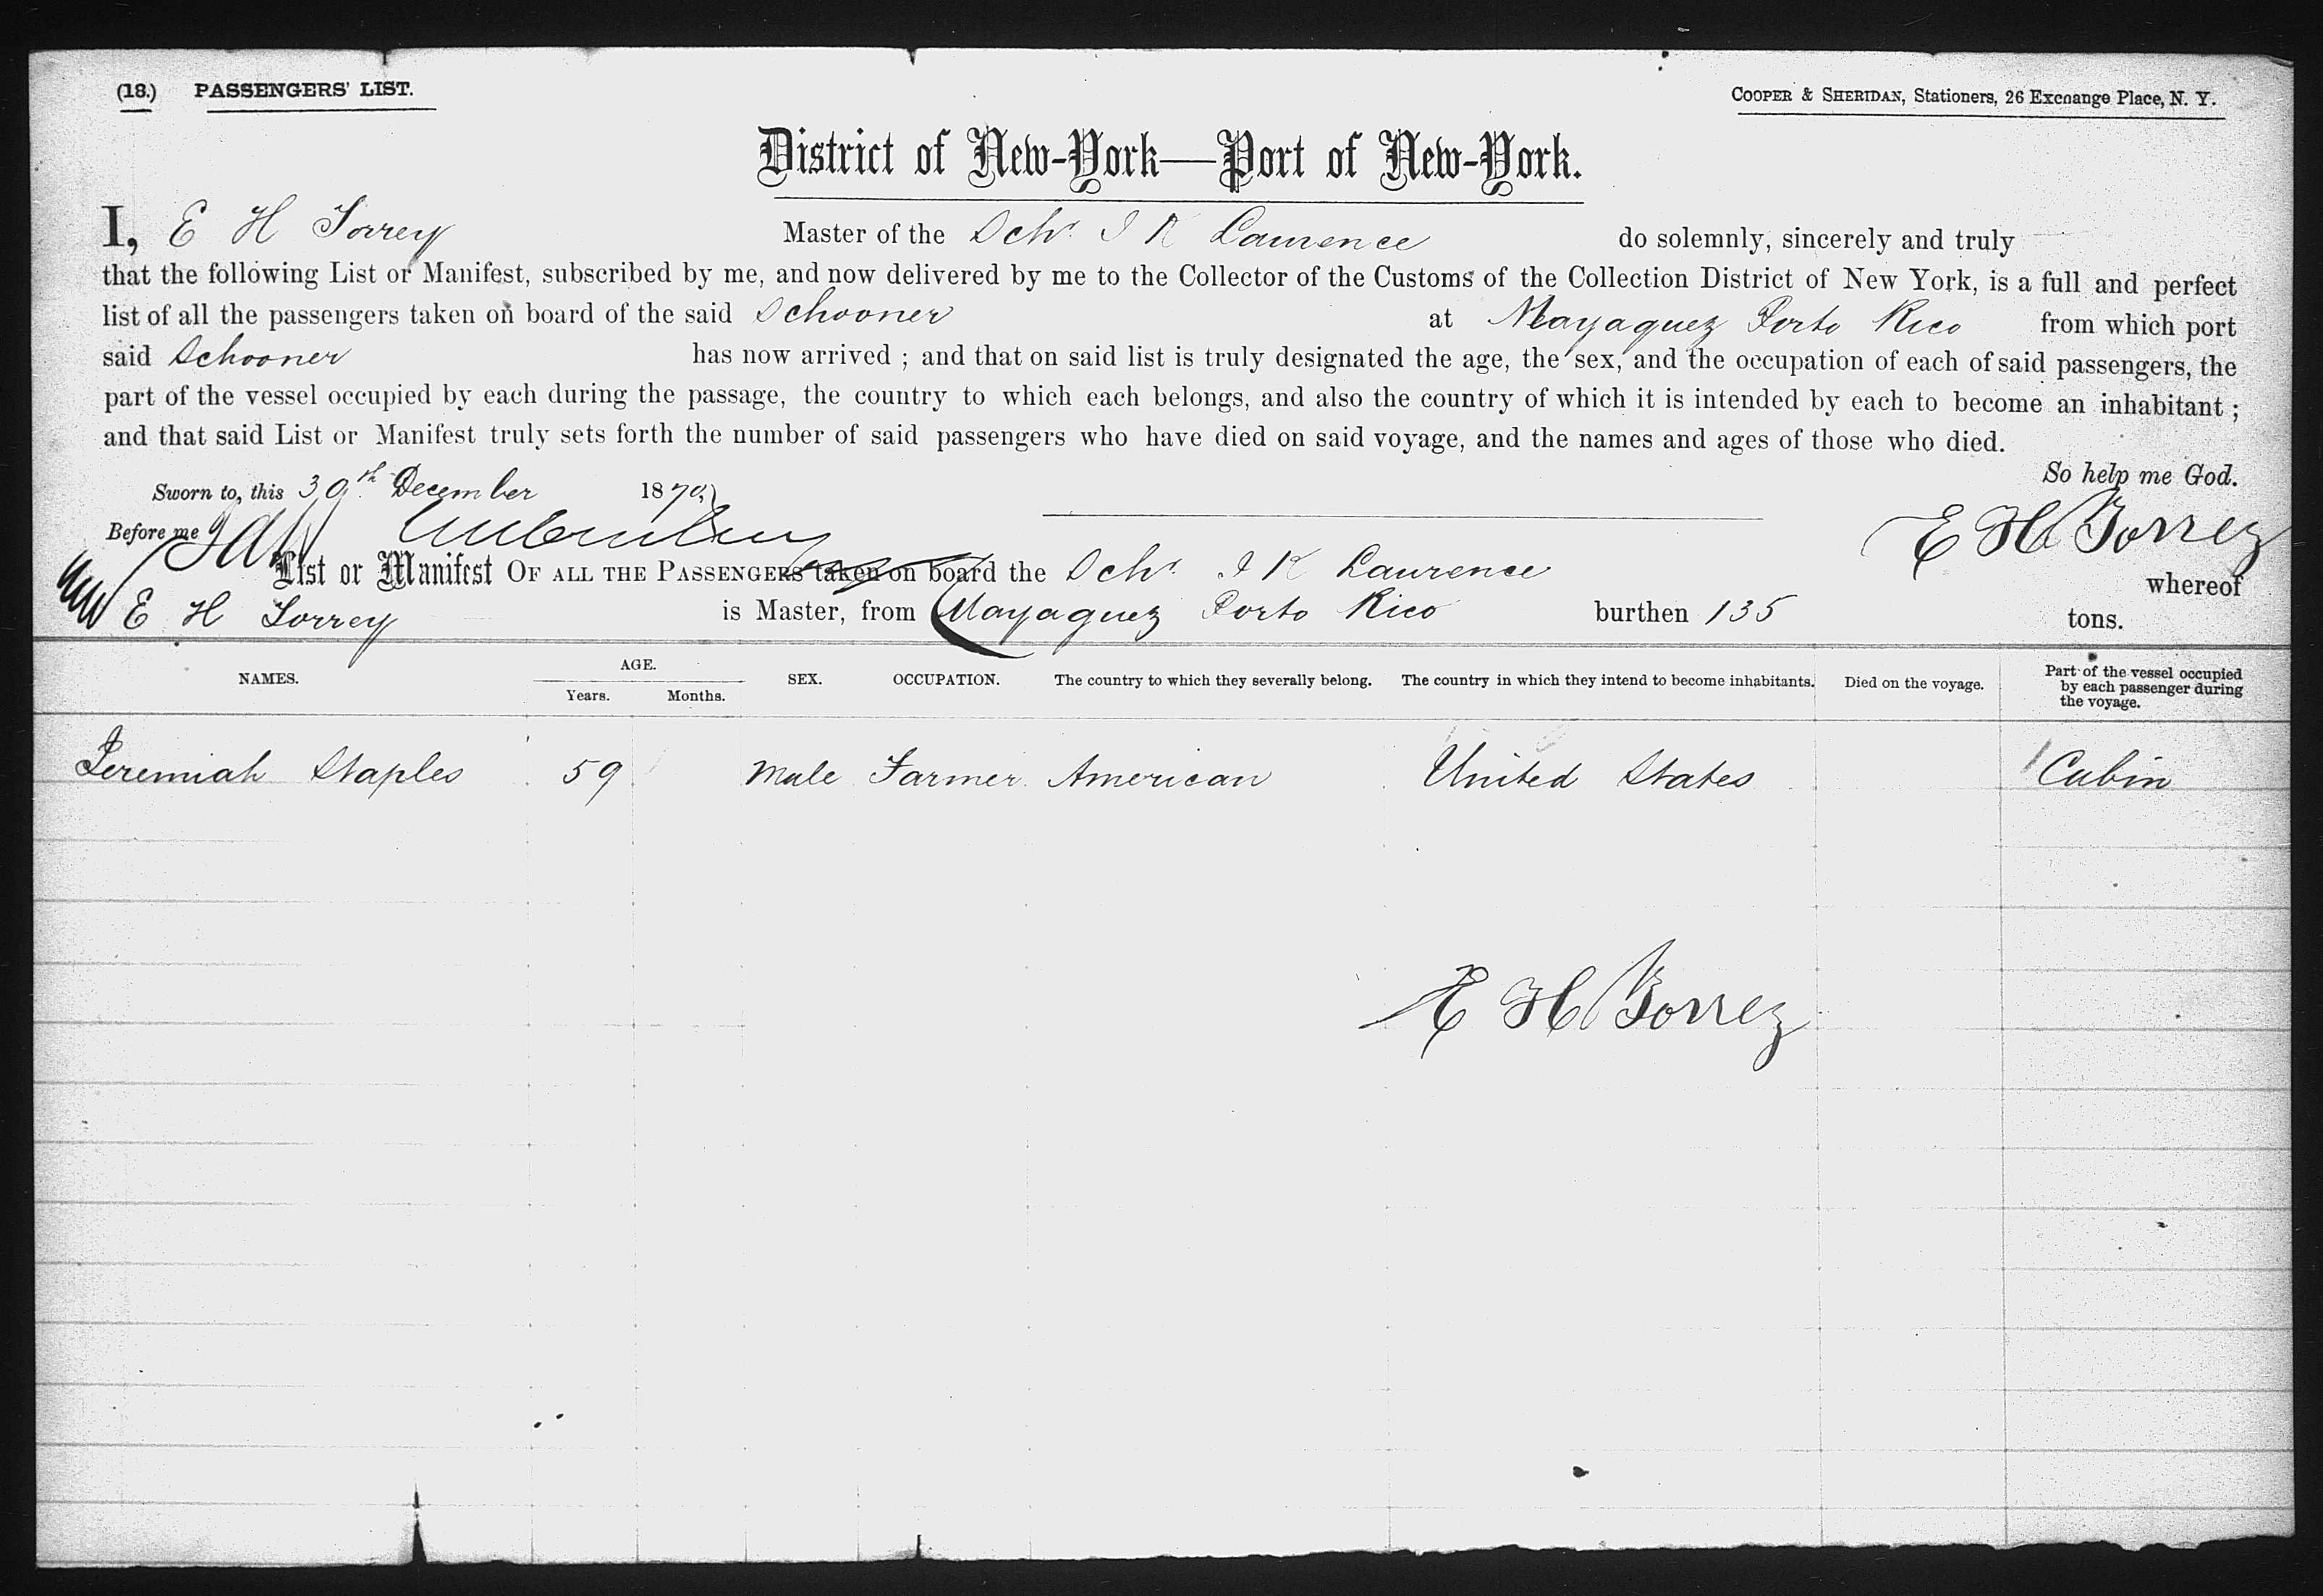 (18.) PASSENGERS' LIST.
COOPER & SHERIDAN, Stationers, 26 Exchange Place, N. Y.
District of New-York—Port of New-York.
I, E H Torrey Master of the Schr I K Laurence do solemnly, sincerely and truly
that the following List or Manifest, subscribed by me, and now delivered by me to the Collector of the Customs of the Collection District of New York, is a full and perfect
list of all the passengers taken on board of the said Schooner at Mayaguez Porto Rico from which port
said Schooner has now arrived ; and that on said list is truly designated the age, the sex, and the occupation of each of said passengers, the
part of the vessel occupied by each during the passage, the country to which each belongs, and also the country of which it is intended by each to become an inhabitant ;
and that said List or Manifest truly sets forth the number of said passengers who have died on said voyage, and the names and ages of those who died.
So help me God.
Sworn to, this 30th December 1879
Before me
E H Torrey
List or Manifest OF ALL THE PASSENGERS taken on board the Schr I K Laurence whereof
E H Torrey is Master, from Mayaguez Porto Rico burthen 135 tons.
NAMES. AGE. Years. Months. SEX. OCCUPATION. The country to which they severally belong. The country in which they intend to become inhabitants. Died on the voyage. Part of the vessel occupied by each passenger during the voyage.
Jeremiah Staples 59 Male Farmer American United States Cabin
E H Torrey